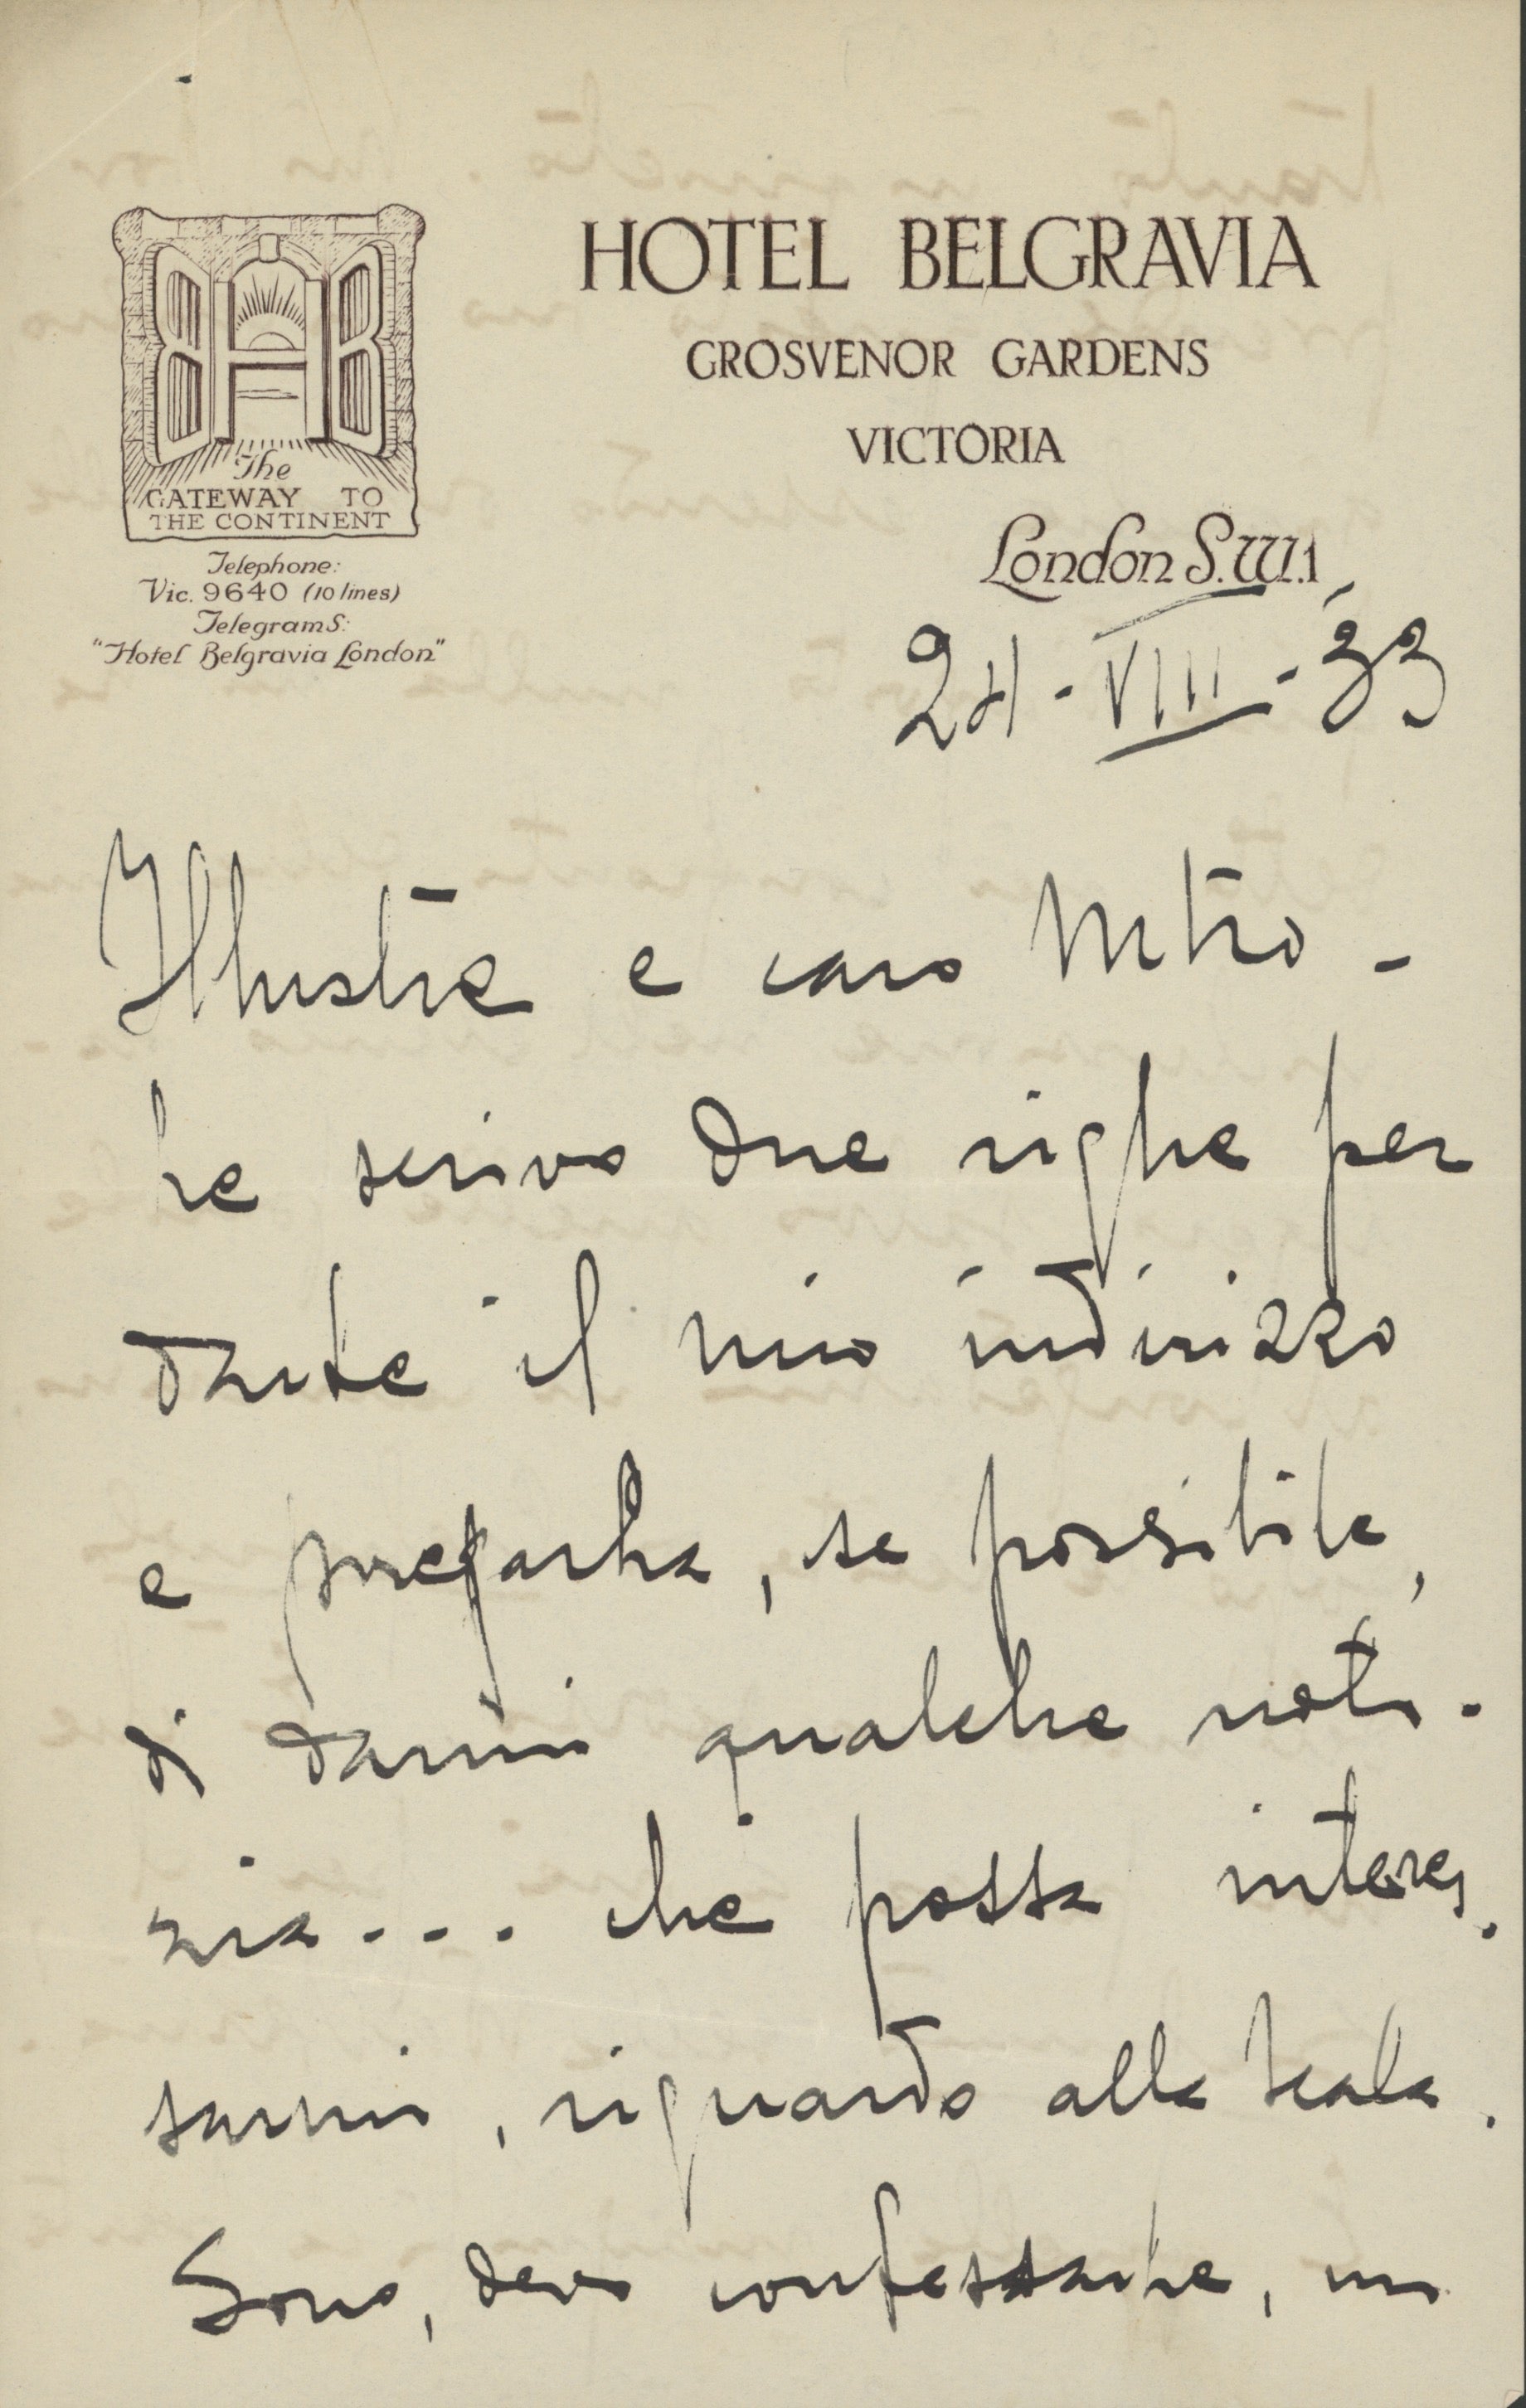 HOTEL BELGRAVIA
GROSVENOR GARDENS
VICTORIA
London S.W.1
The
GATEWAY TO
THE CONTINENT
Telephone:
Vic. 9640 (10 lines)
Telegrams:
"Hotel Belgravia London"
24-VIII-'33
Illustre e caro Mtro -
le scrivo due righe per
darle il mio indirizzo
e pregarla, se possibile,
di darmi qualche noti-
zia.... che possa interes-
sarmi, riguardo alla Scala.
Sono, devo confessarle, un